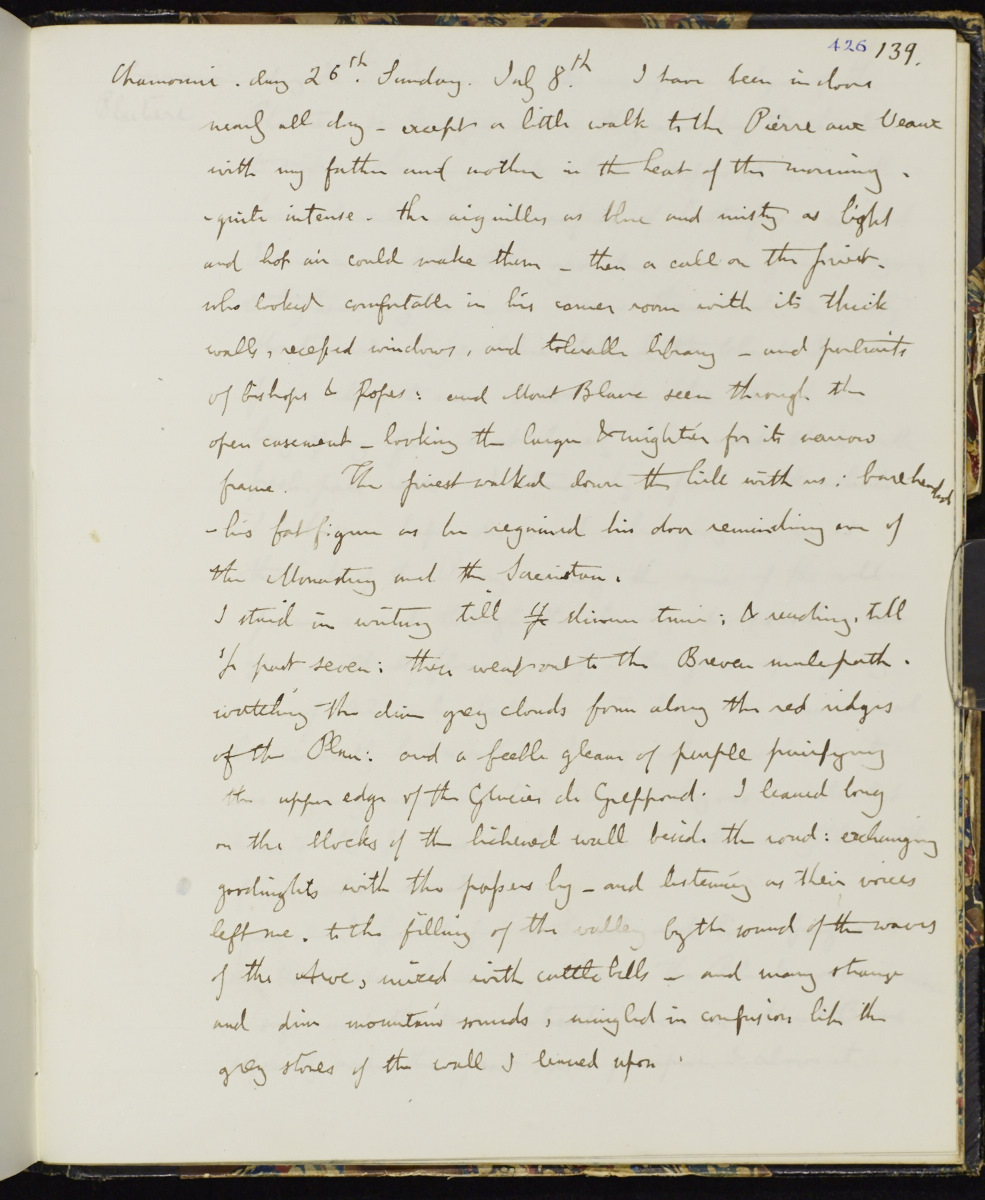 426 139.
Chamouni. day 26th. Sunday. July 8th. I have been indoors
nearly all day – except a little walk to the Pierre aux Veaux
with my father and mother in the heat of the morning.
– quite intense. the aiguilles as blue and misty as light
and hot air could make them – then a call on the priest.
who looked comfortable in his corner room with its thick
walls, recessed windows, and tolerable library – and portraits
of bishops & Popes: and Mont Blanc seen through the
open casement – looking the larger & mightier for its narrow
frame. The priest walked down the hill with us; bareheaded
– his fat figure as he regained his door reminding one of
the Monastery and the Sacristan.
I staid in writing till dinner time; & reading, till
1/2 past seven: then went out to the Breven mulepath.
watching the dim grey clouds form along the red ridges
of the Plan: and a feeble gleam of purple purifying
the upper edge of the Glacier de Greppond. I leaned long
on the blocks of the lichened wall beside the road: exchanging
goodnights with the passers by – and listening as their voices
left me. to the filling of the valley by the sound of the waves
of the Arve, mixed with cattle bells – and many strange
and dim mountain sounds, mingled in confusion like the
grey stones of the wall I leaned upon.